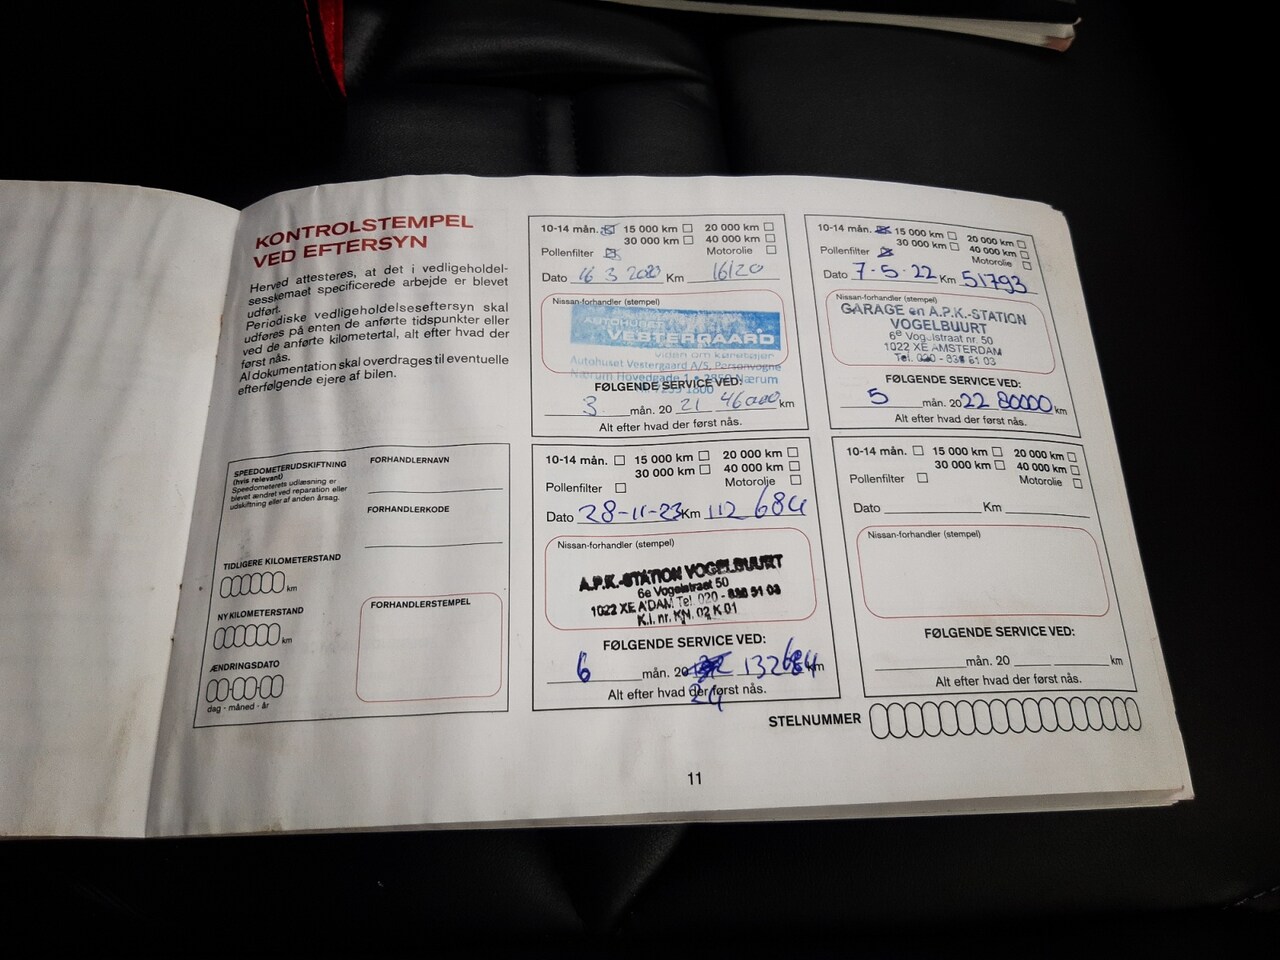 KONTROLSTEMPEL
VED EFTERSYN
Herved attesteres, at det i vedligeholdel-
sesskemaet specificerede arbejde er blevet
udført.
Periodiske vedligeholdelseseftersyn skal
udføres på enten de anførte tidspunkter eller
ved de anførte kilometertal, alt efter hvad der
først nås.
Al dokumentation skal overdrages til eventuelle
efterfølgende ejere af bilen.
SPEEDOMETERUDSKIFTNING
(hvis relevant)
Speedometerets udlæsning er
blevet ændret ved reparation eller
udskiftning eller af anden årsag.
TIDLIGERE KILOMETERSTAND
km
NY KILOMETERSTAND
km
ÆNDRINGSDATO
dag - måned - år
FORHANDLERNAVN
FORHANDLERKODE
FORHANDLERSTEMPEL
10-14 mån. 15 000 km 20 000 km
30 000 km 40 000 km
Pollenfilter Motorolie
Dato 16 3 2020 Km 16120
Nissan-forhandler (stempel)
AUTOHUSET
VESTERGAARD
viden om køretøjer
Autohuset Vestergaard A/S, Personvogne
Nærum Hovedgade 1 - 2850 Nærum
1800
FØLGENDE SERVICE VED:
3 mån. 20 21 46000 km
Alt efter hvad der først nås.
10-14 mån. 15 000 km 20 000 km
30 000 km 40 000 km
Pollenfilter Motorolie
Dato 7-5-22 Km 51793
Nissan-forhandler (stempel)
GARAGE en A.P.K.-STATION
VOGELBUURT
6e Vogelstraat nr. 50
1022 XE AMSTERDAM
Tel. 020 - 636 51 03
FØLGENDE SERVICE VED:
5 mån. 20 22 80000 km
Alt efter hvad der først nås.
10-14 mån. 15 000 km 20 000 km
30 000 km 40 000 km
Pollenfilter Motorolie
Dato 28-11-23 Km 112684
Nissan-forhandler (stempel)
A.P.K.-STATION VOGELBUURT
6e Vogelstraat 50
1022 XE A'DAM Tel. 020 - 636 51 03
K.I. nr. KN. 02 K 01
FØLGENDE SERVICE VED:
6 mån. 20 132684 km
24
Alt efter hvad der først nås.
10-14 mån. 15 000 km 20 000 km
30 000 km 40 000 km
Pollenfilter Motorolie
Dato Km
Nissan-forhandler (stempel)
FØLGENDE SERVICE VED:
mån. 20 km
Alt efter hvad der først nås.
STELNUMMER
11